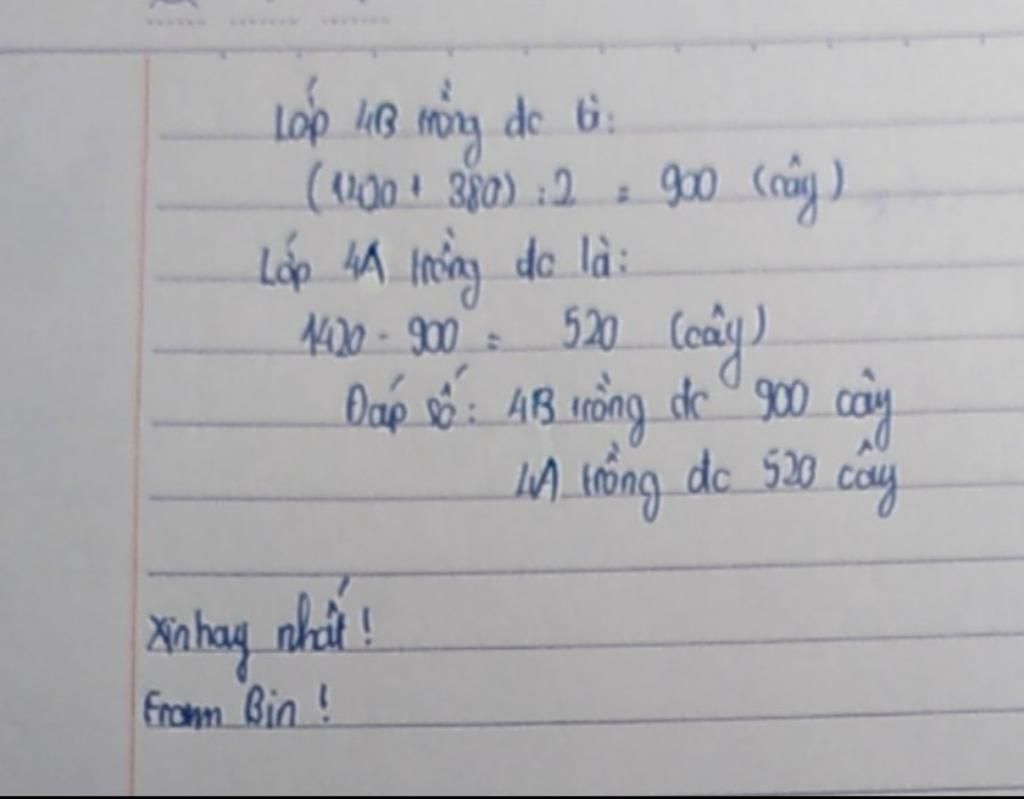 Lớp 4B trồng dc là:
(1420 + 380) : 2 = 900 (cây)
Lớp 4A trồng dc là:
1420 - 900 = 520 (cây)
Đáp số: 4B trồng dc 900 cây
4A trồng dc 520 cây
Xinhay nhất!
From Bin!